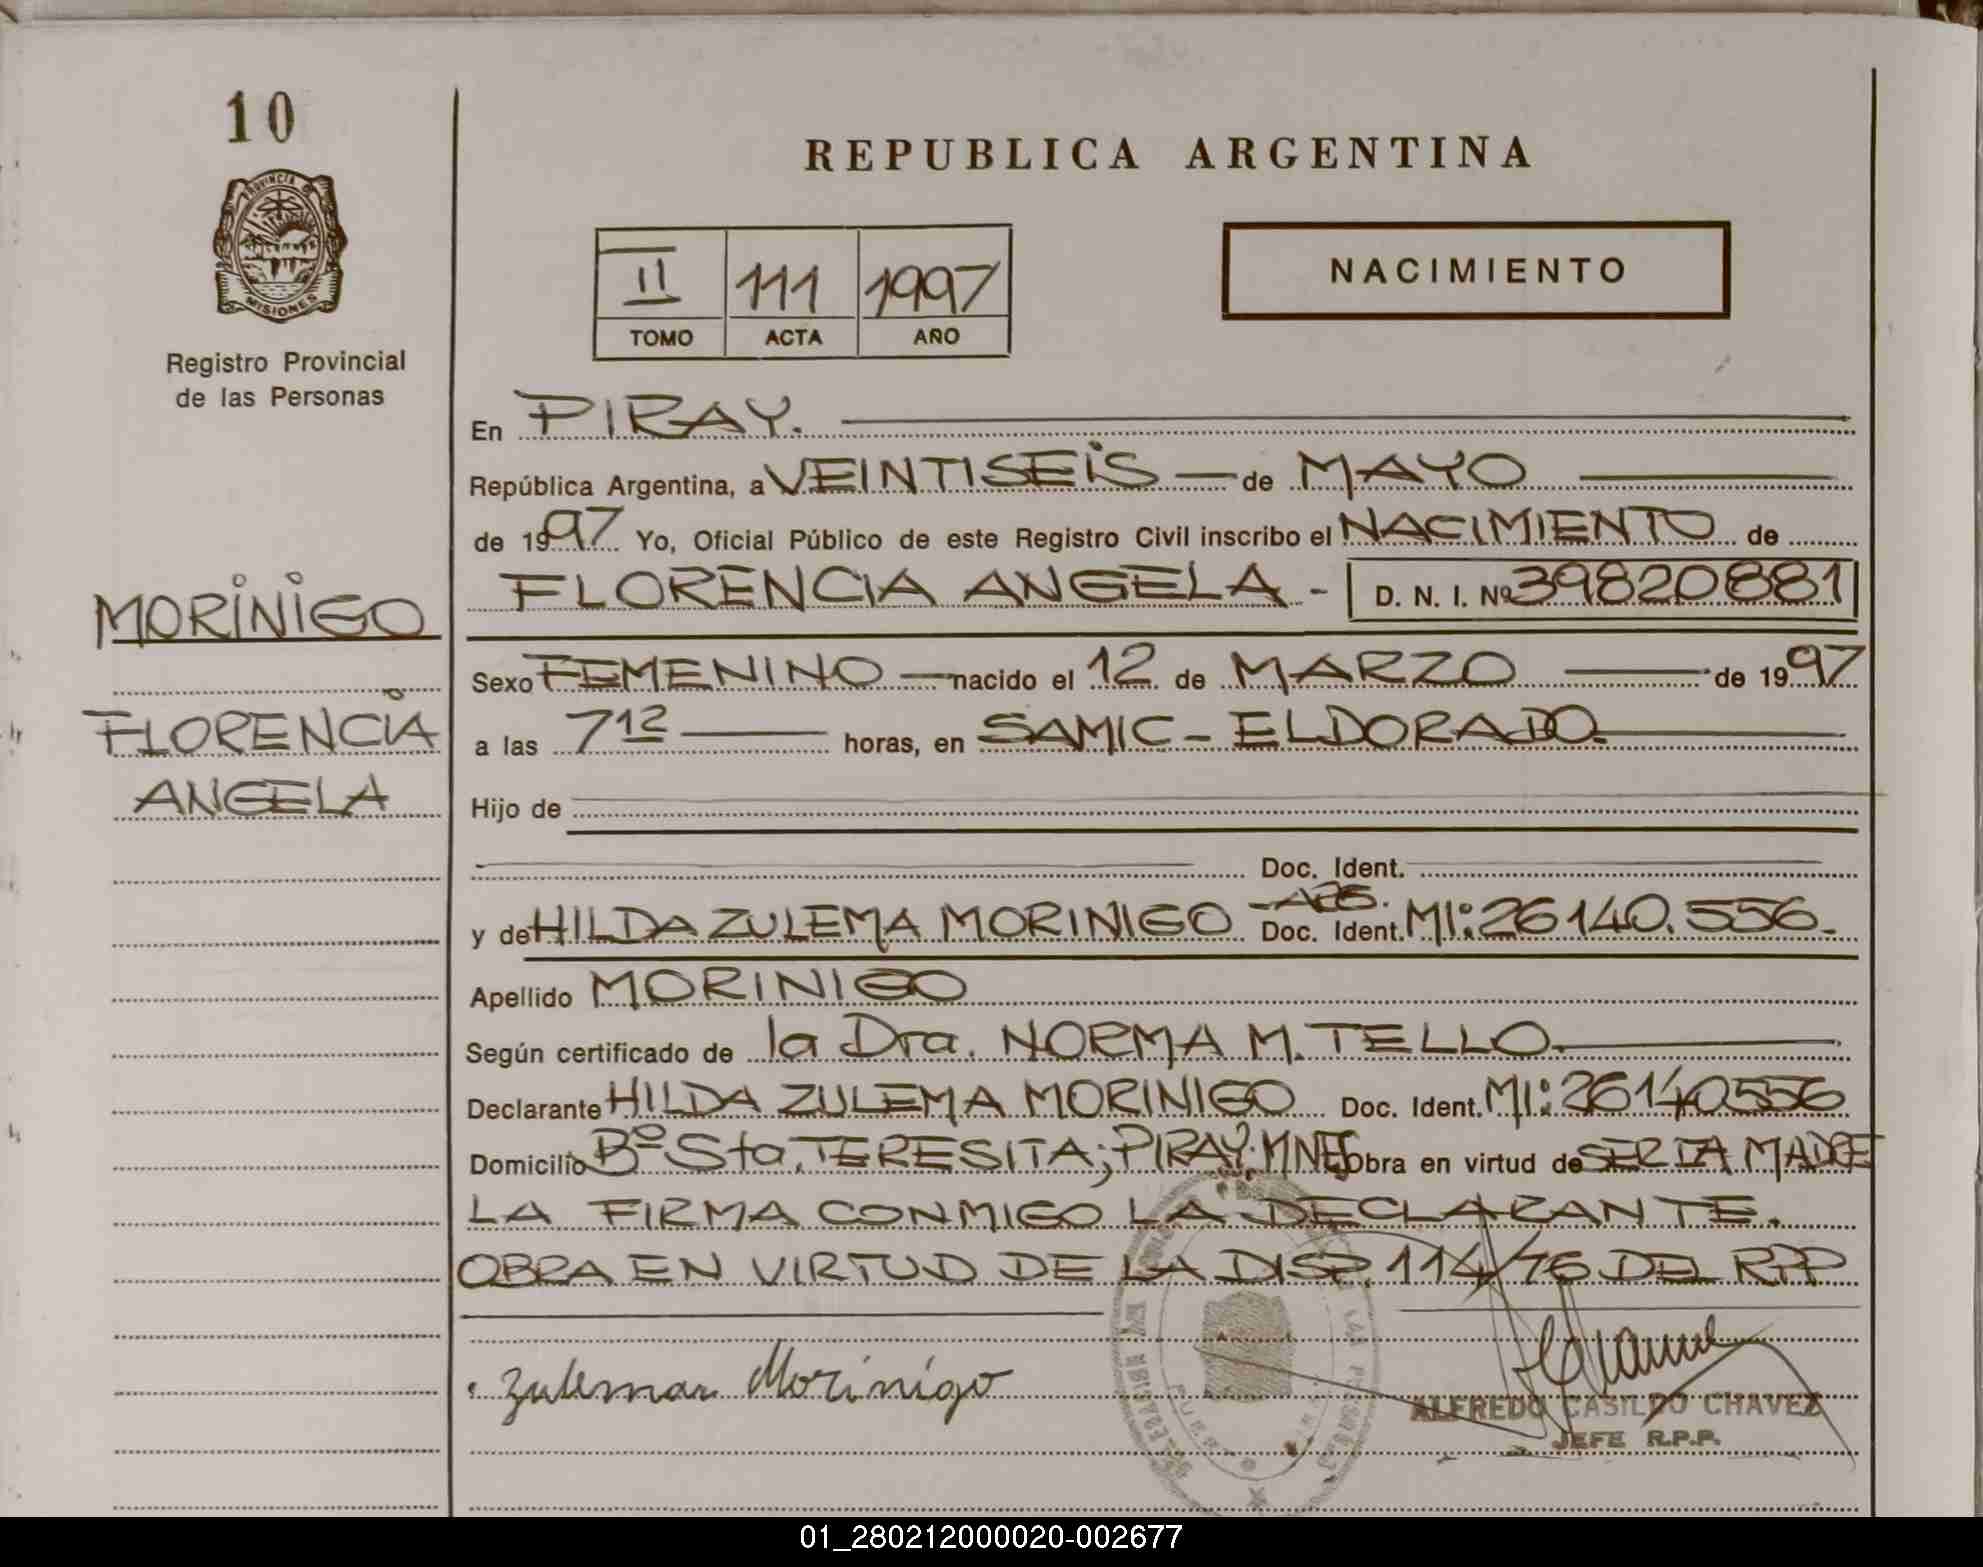 10
PROVINCIA DE
MISIONES
Registro Provincial
de las Personas
REPUBLICA ARGENTINA
II 111 1997
TOMO ACTA AÑO
NACIMIENTO
En PIRAY.
República Argentina, a VEINTISEIS de MAYO
de 1997 Yo, Oficial Público de este Registro Civil inscribo el NACIMIENTO de
FLORENCIA ANGELA - D. N. I. Nº 39820881
MORINIGO
FLORENCIA
ANGELA
Sexo FEMENINO nacido el 12 de MARZO de 1997
a las 7 12 horas, en SAMIC - ELDORADO.
Hijo de
Doc. Ident.
y de HILDA ZULEMA MORINIGO Doc. Ident. MI: 26140.556.
Apellido MORINIGO
Según certificado de la Dra. NORMA M. TELLO.
Declarante HILDA ZULEMA MORINIGO Doc. Ident. MI: 26140556
Domicilio Bº Sta. TERESITA; PIRAY; MNES Obra en virtud de SER LA MADRE
LA FIRMA CONMIGO LA DECLARANTE.
OBRA EN VIRTUD DE LA DISP. 114/76 DEL RPP
Zulema Morinigo
ALFREDO CASILDO CHAVEZ
JEFE R.P.P.
01_280212000020-002677